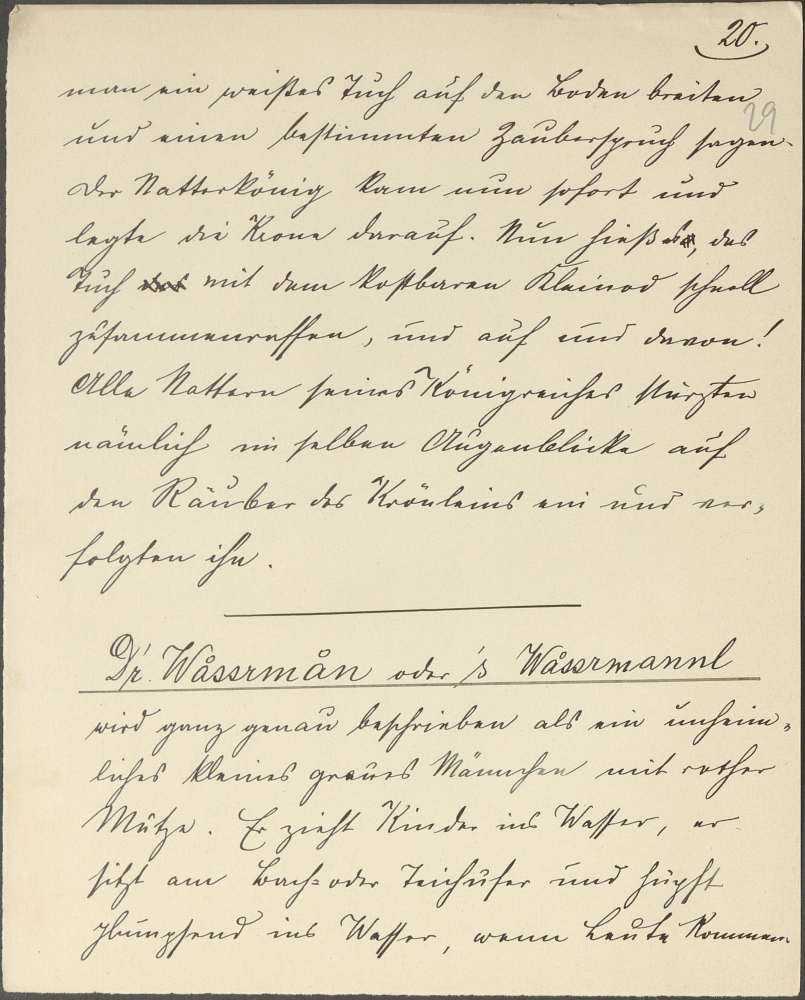 20.
29
man ein weißes Tuch auf den Boden breiten
und einen bestimmten Zauberspruch sagen.
Der Natterkönig kam nun sofort und
legte die Krone darauf. Nun hieß es, das
Tuch mit dem kostbaren Kleinod schnell
zusammenraffen, und auf und davon!
Alle Nattern seines Königreiches stürzten
nämlich im selben Augenblicke auf
den Räuber des Krönleins ein und ver-
folgten ihn.
D'r Wåssrmån oder 's Wåssrmannl
wird ganz genau beschrieben als ein unheim-
liches kleines graues Männchen mit rother
Mütze. Er zieht Kinder ins Wasser, er
sitzt am Bach- oder Teichufer und hüpft
plumpsend ins Wasser, wenn Leute kommen.